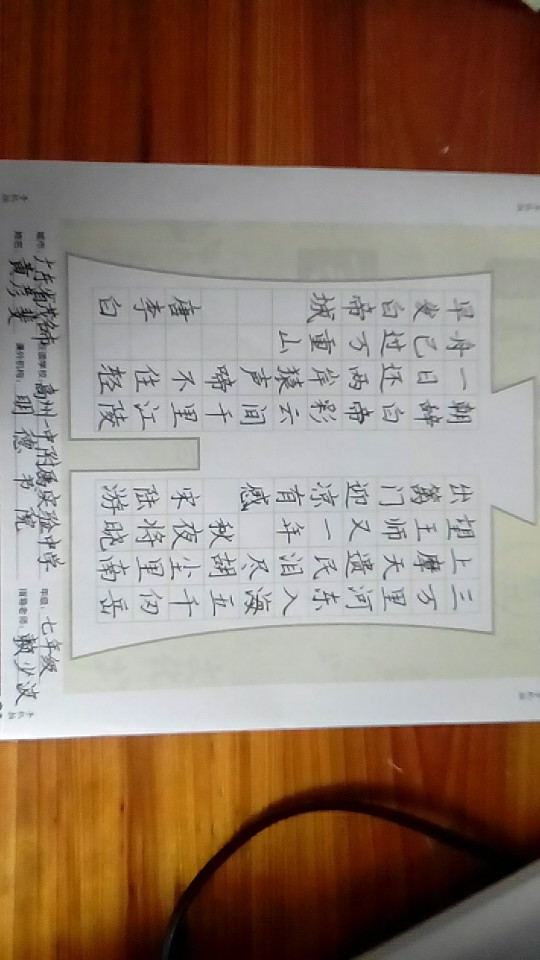 三万里河东入海五千仞岳
上摩天遗民泪尽胡尘里南
望王师又一年 秋夜将晓
出篱门迎凉有感 宋 陆游
朝辞白帝彩云间千里江陵
一日还两岸猿声啼不住轻
舟已过万重山
早发白帝城 唐 李白
城市：广东省 就读学校：高州一中附属实验中学 年级：七年级
姓名：黄彦斐 课外机构：明德书院 指导老师：赖少波